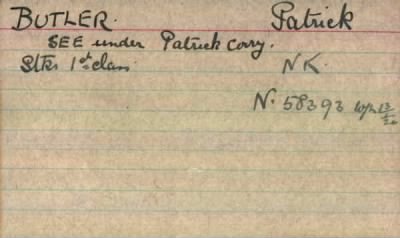 BUTLER. Patrick
SEE under Patrick Corry.
Stkr 1st class. NK.
N. 58393